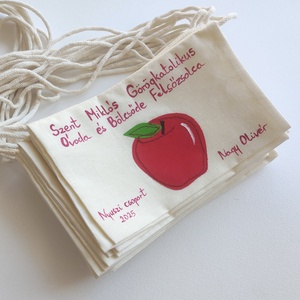 Szent Miklós Görögkatolikus
Óvoda és Bölcsőde Felsőzsolca
Nyuszi csoport
2025
Nagy Olivér